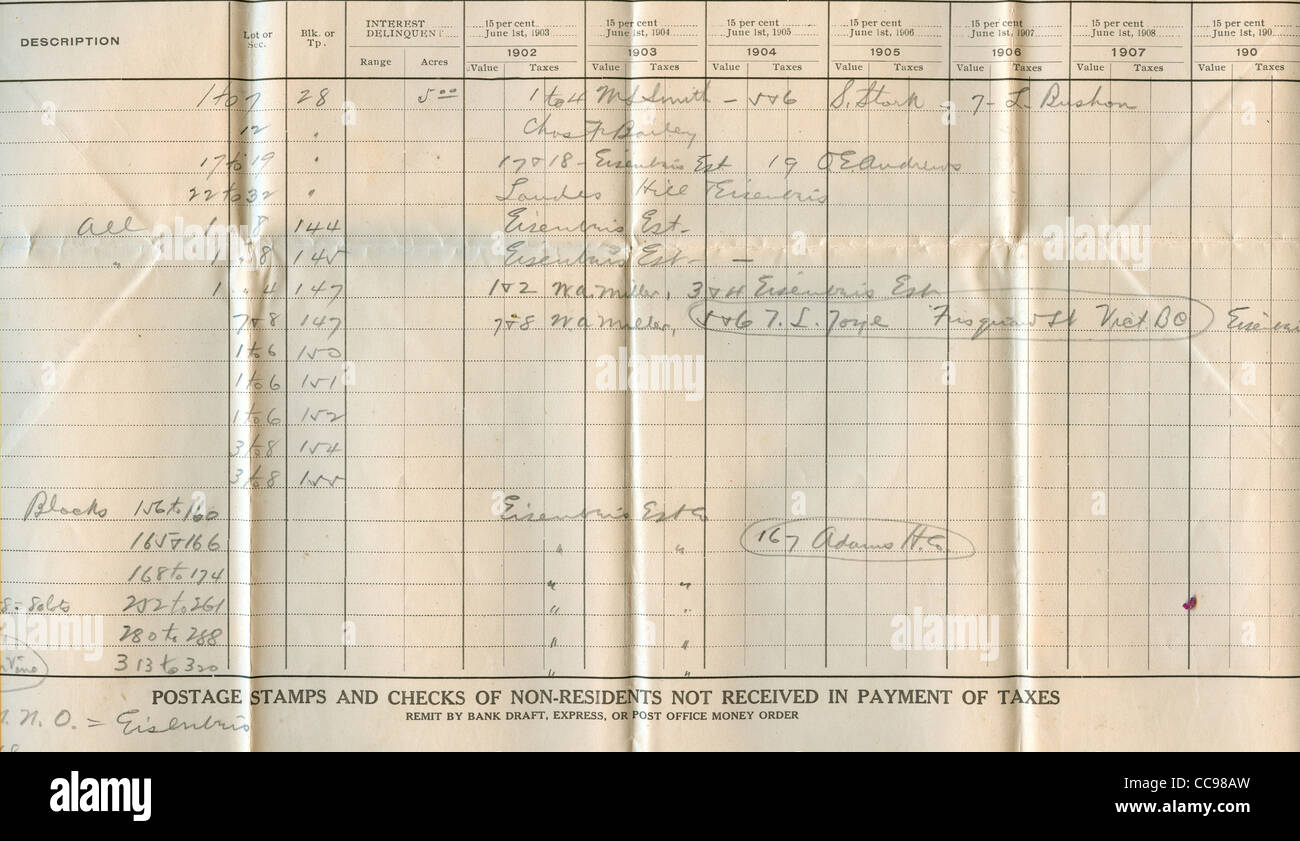 INTEREST 15 per cent 15 per cent 15 per cent 15 per cent 15 per cent 15 per cent 15 per cent
DESCRIPTION Lot or Sec. Blk. or Tp. DELINQUENT June 1st, 1903 June 1st, 1904 June 1st, 1905 June 1st, 1906 June 1st, 1907 June 1st, 1908 June 1st, 190
1902 1903 1904 1905 1906 1907 190
Range Acres Value Taxes Value Taxes Value Taxes Value Taxes Value Taxes Value Taxes Value Taxes
1 to 7 28 5 00 1 to 4 Smith - 5 & 6 S. Stork - 7 - L. Bushon
12 " Chas F Bailey
17 to 19 " 17 & 18 - Eisenbris Est 19 O E Andrews
22 to 32 " Landes Hill Eisenbris
All 1 .. 8 144 Eisenbris Est -
" 1 .. 8 145 Eisenbris Est - -
1 .. 4 147 1 & 2 W.A. Miller, 3 & 4 Eisenbris Est
7 & 8 147 7 & 8 W.A. Miller, 5 & 6 T. L. St Vict BC
1 to 6 150
1 to 6 151
1 to 6 152
3 to 8 154
3 to 8 155
Blocks 156 to 160 Eisenbris Est Co
165 & 166 " " 167 Adams H. Co.
168 to 174 " "
252 to 261 " "
280 to 288 " "
313 to 320 " "
POSTAGE STAMPS AND CHECKS OF NON-RESIDENTS NOT RECEIVED IN PAYMENT OF TAXES
REMIT BY BANK DRAFT, EXPRESS, OR POST OFFICE MONEY ORDER
N. O. = Eisenbris
alamy
Image ID: CC98AW
www.alamy.com